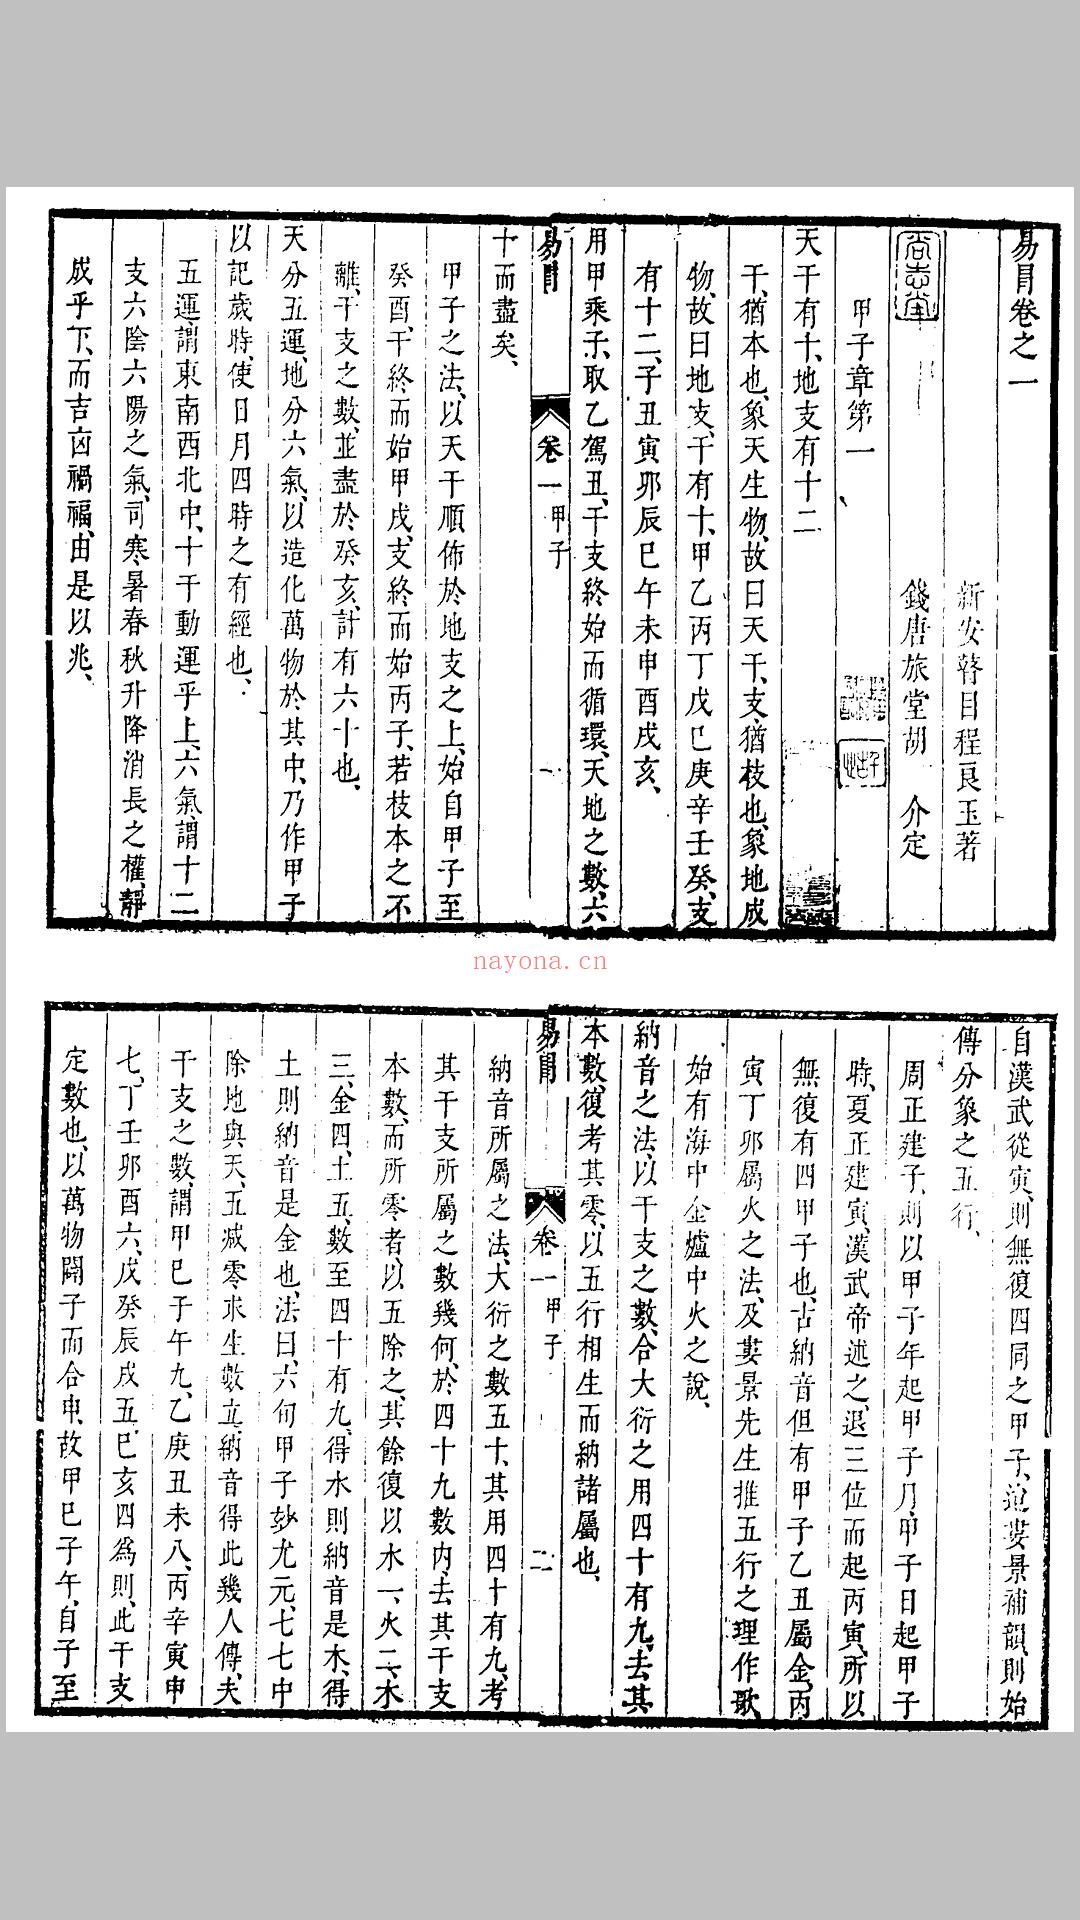 易冒卷之一
新安瞽目程良玉著
尚志堂
錢唐旅堂胡　介定
甲子章第一
天干有十、地支有十二
干、猶本也、象天生物、故曰天干、支、猶枝也、象地成
物、故曰地支、干有十、甲乙丙丁戊己庚辛壬癸、支
有十二、子丑寅卯辰巳午未申酉戌亥、
用甲乘子、取乙駕丑、干支終始而循環、天地之數、六
易冒　卷一　甲子　一
十而盡矣、
甲子之法、以天干順佈於地支之上、始自甲子至
癸酉、干終而始甲戌、支終而始丙子、若枝本之不
離、干支之數、並盡於癸亥、計有六十也、
天分五運、地分六氣、以造化萬物於其中、乃作甲子
以記歲時、使日月四時之有經也、
五運、謂東南西北中、十干動運乎上、六氣、謂十二
支六陰六陽之氣、司寒暑春秋升降消長之權、靜
成乎下、而吉凶禍福、由是以兆、
nayona.cn
自漢武從寅、則無復四同之甲子、迨婁景補韻、則始
傳分象之五行、
周正建子、則以甲子年起甲子月、甲子日起甲子
時、夏正建寅、漢武帝述之、退三位而起丙寅、所以
無復有四甲子也、古納音但有甲子乙丑屬金、丙
寅丁卯屬火之法、及婁景先生推五行之理作歌
始有海中金爐中火之說、
納音之法、以干支之數、合大衍之用四十有九、去其
本數、復考其零、以五行相生而納諸屬也、
易冒　卷一　甲子　二
納音所屬之法、大衍之數五十、其用四十有九、考
其干支所屬之數幾何、於四十九數內、去其干支
本數、而所零者、以五除之、其餘復以水一、火二、木
三、金四、土五、數至四十有九、得水則納音是木、得
土則納音是金也、法曰、六旬甲子妙尤元、七七中
除地與天、五減零求生數立、納音得此幾人傳、夫
干支之數、謂甲己子午九、乙庚丑未八、丙辛寅申
七、丁壬卯酉六、戊癸辰戌五、巳亥四爲則、此干支
定數也、以萬物闢子而合申、故甲己子午、自子至